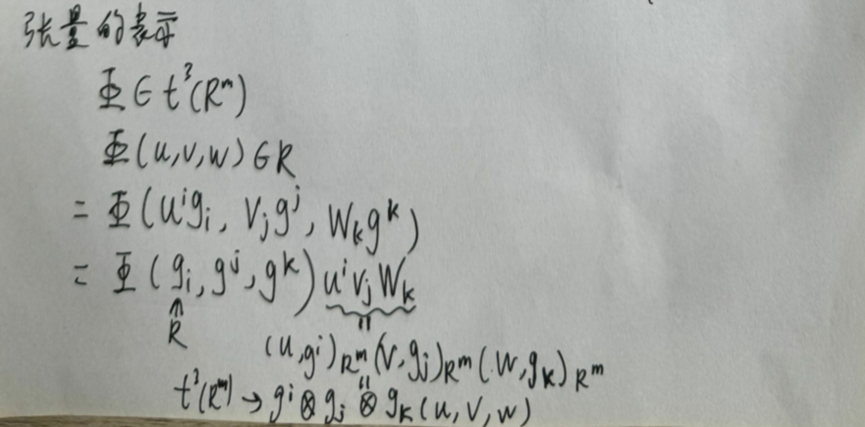 张量的表示
Φ∈t³(Rᵐ)
Φ(u,v,w)∈R
= Φ(uⁱgᵢ, vⱼgʲ, wₖgᵏ)
= Φ(gᵢ,gʲ,gᵏ)uⁱvⱼwₖ
⇑ 〃
R (u,gⁱ)Rᵐ(v,gⱼ)Rᵐ(w,gₖ)Rᵐ
〃
t³(Rᵐ)→gⁱ⊗gⱼ⊗gₖ(u,v,w)